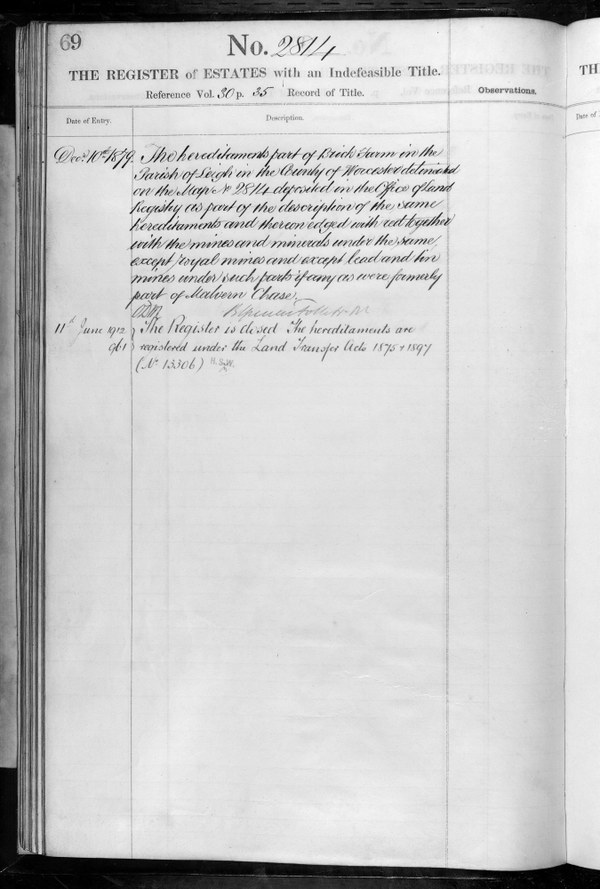 69
No. 2814
THE REGISTER of ESTATES with an Indefeasible Title.
Reference Vol. 30 p. 35 Record of Title.
Observations.
Date of Entry.
Description.
Decr 10th 1879. The hereditaments part of Brick Farm in the
Parish of Leigh in the County of Worcester delineated
on the Map No 2814 deposited in the Office of Land
Registry as part of the description of the same
hereditaments and thereon edged with red together
with the mines and minerals under the same
except royal mines and except lead and tin
mines under such parts if any as were formerly
part of Malvern Chase
11th June 1912 The Register is closed The hereditaments are
961 registered under the Land Transfer Acts 1875 & 1897
(No 15306)
TH
Date of